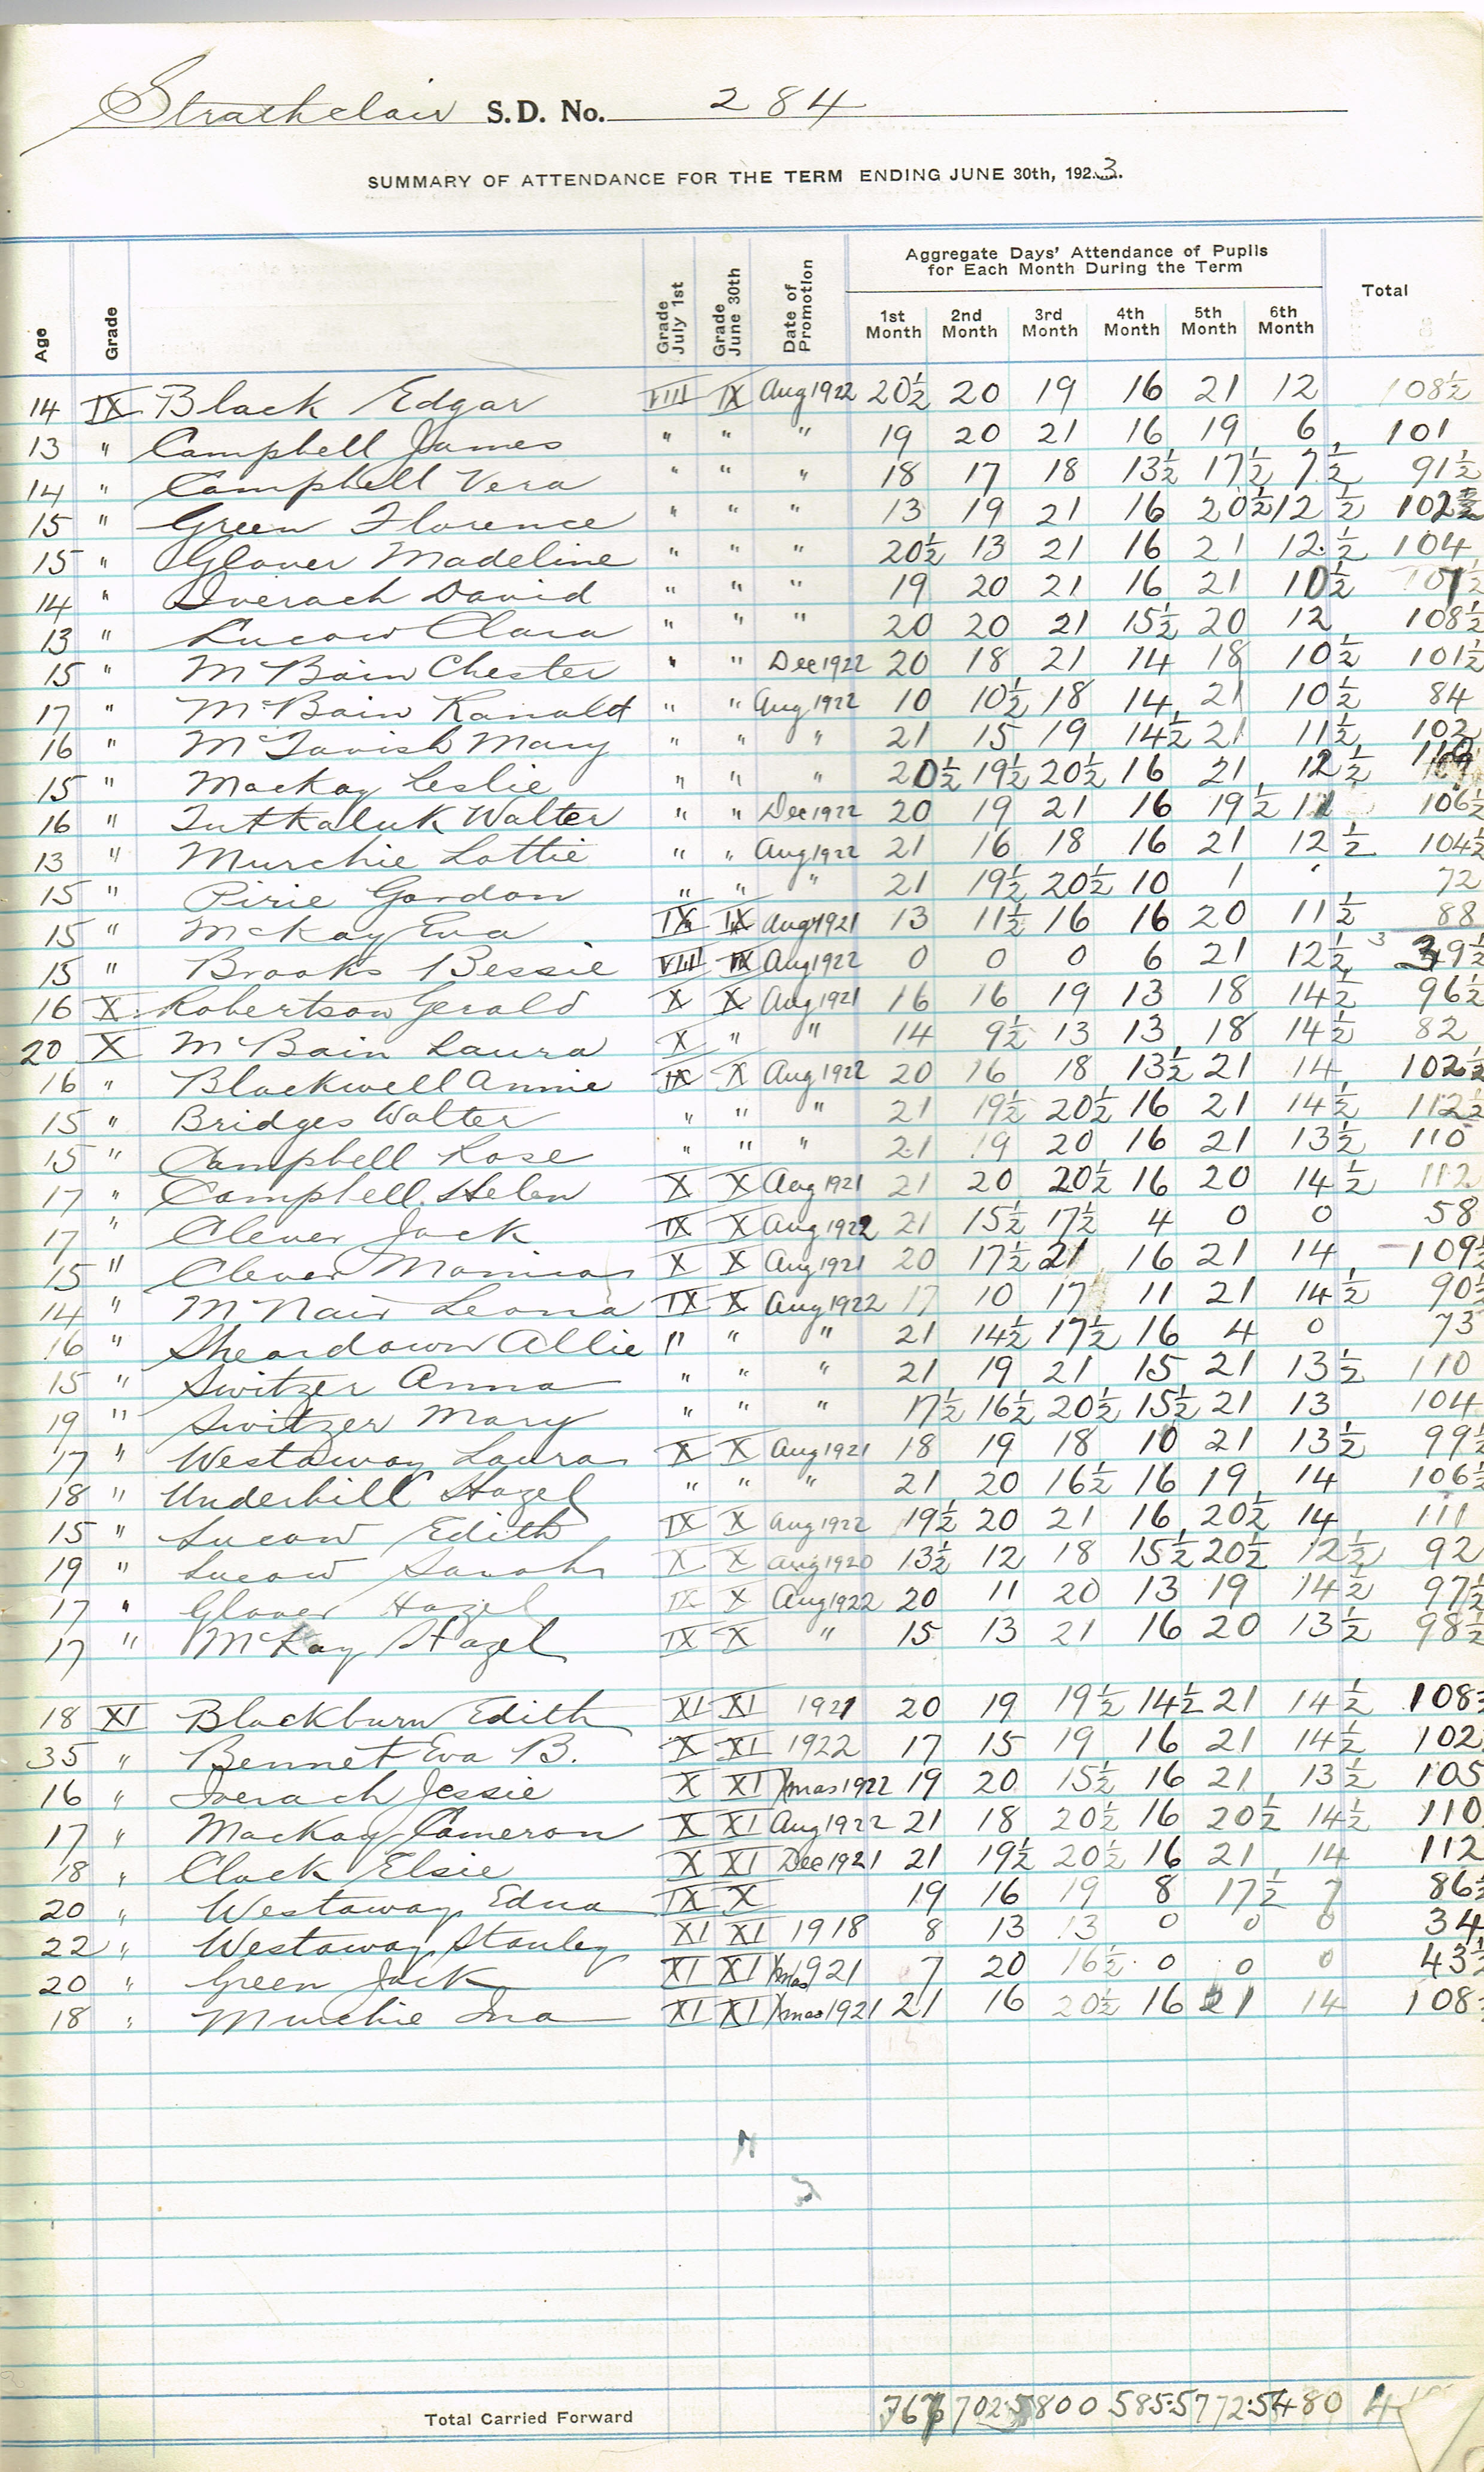 Strathclair S.D. No. 284
SUMMARY OF ATTENDANCE FOR THE TERM ENDING JUNE 30th, 1923.
Age Grade Grade July 1st Grade June 30th Date of Promotion Aggregate Days' Attendance of Pupils for Each Month During the Term Total
1st Month 2nd Month 3rd Month 4th Month 5th Month 6th Month
14 IX Black Edgar VIII IX Aug 1922 20½ 20 19 16 21 12 108½
13 " Campbell James " " " 19 20 21 16 19 6 101
14 " Campbell Vera " " " 18 17 18 13½ 17½ 7½ 91½
15 " Green Florence " " " 13 19 21 16 20½ 12½ 102½
15 " Glover Madeline " " " 20½ 13 21 16 21 12½ 104
14 " Iverach David " " " 19 20 21 16 21 10½ 107½
13 " Lucow Clara " " " 20 20 21 15½ 20 12 108½
15 " McBain Chester " " Dec 1922 20 18 21 14 18 10½ 101½
17 " McBain Ranald " " Aug 1922 10 10½ 18 14 21 10½ 84
16 " McTavish Mary " " " 21 15 19 14½ 21 11½ 102
15 " Mackay Leslie " " " 20½ 19½ 20½ 16 21 12½ 110
16 " Tutkaluk Walter " " Dec 1922 20 19 21 16 19½ 11 106½
13 " Murchie Lottie " " Aug 1922 21 16 18 16 21 12½ 104½
15 " Pirie Gordon " " " 21 19½ 20½ 10 1 72
15 " McKay Eva IX IX Aug 1921 13 11½ 16 16 20 11½ 88
15 " Brooks Bessie VIII IX Aug 1922 0 0 0 6 21 12½ 39½
16 X Robertson Gerald X X Aug 1921 16 16 19 13 18 14½ 96½
20 X McBain Laura X " " 14 9½ 13 13 18 14½ 82
16 " Blackwell Annie IX X Aug 1922 20 16 18 13½ 21 14 102½
15 " Bridges Walter " " " 21 19½ 20½ 16 21 14½ 112½
15 " Campbell Rose " " " 21 19 20 16 21 13½ 110
17 " Campbell Helen X X Aug 1921 21 20 20½ 16 20 14½ 112
17 " Clever Jack IX X Aug 1922 21 15½ 17½ 4 0 0 58
15 " Clever X X Aug 1921 20 17½ 21 16 21 14 109½
14 " McNair Leona IX X Aug 1922 17 10 17 11 21 14½ 90½
16 " Sheardown Allie " " " 21 14½ 17½ 16 4 0 73
15 " Switzer Anna " " " 21 19 21 15 21 13½ 110
19 " Switzer Mary " " " 17½ 16½ 20½ 15½ 21 13 104
17 " Westaway Laura X X Aug 1921 18 19 18 10 21 13½ 99½
18 " Underhill Hazel " " " 21 20 16½ 16 19 14 106½
15 " Lucow Edith IX X Aug 1922 19½ 20 21 16 20½ 14 111
19 " Lucow Sarah X X Aug 1920 13½ 12 18 15½ 20½ 12½ 92
17 " Glover Hazel IX X Aug 1922 20 11 20 13 19 14½ 97½
17 " McKay Hazel IX X " 15 13 21 16 20 13½ 98½
18 XI Blackburn Edith XI XI 1921 20 19 19½ 14½ 21 14½ 108½
35 " Bennet Eva B. X XI 1922 17 15 19 16 21 14½ 102
16 " Iverach Jessie X XI Xmas 1922 19 20 15½ 16 21 13½ 105
17 " Mackay Cameron X XI Aug 1922 21 18 20½ 16 20½ 14½ 110
18 " Clack Elsie X XI Dec 1921 21 19½ 20½ 16 21 14 112
20 " Westaway Edna IX X 19 16 19 8 17½ 7 86½
22 " Westaway Stanley XI XI 1918 8 13 13 0 0 0 34
20 " Green Jack XI XI Xmas 1921 7 20 16½ 0 0 0 43½
18 " Murchie Ina XI XI Xmas 1921 21 16 20½ 16 21 14 108
Total Carried Forward 767 702.5 800 585.5 772.5 480